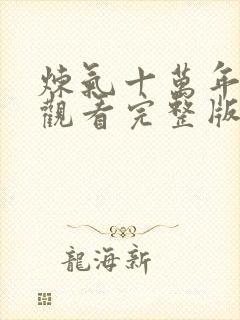 煉氣十萬年
觀看完整版
龍海新